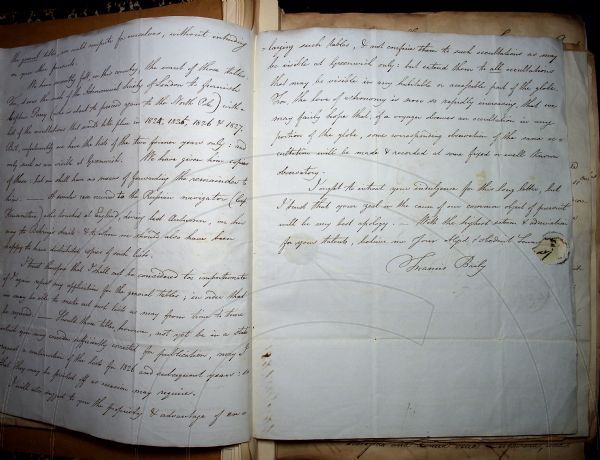 the general tables, we could compute for ourselves, without intruding
on your time
We have recently felt, in this country, the want of those tables.
The Astronomical Society of London to furnish
Captain Parry (who is about to proceed again to the North Pole) with a
list of the occultations that would take place in 1824, 1825, 1826 & 1827.
But, unfortunately we have the lists of the two former years only: and
only such as are visible at Greenwich. We have given him copies
of these: but we shall have no means of forwarding the remainder to
him. — A similar case occurred to the Russian navigator Capt
who touched at England, during last Autumn, on his
way to Behring's straits: & to whom we should also have been
happy to have distributed copies of such lists.
I trust therefore that I shall not be considered too importunate
if I again repeat my application for the general tables; in order that
we may be able to make out such lists as may from time to time
be required. — Should these tables, however, not yet be in a state
which you may consider sufficiently corrected for publication, may I
request a continuation of the lists for 1826 and subsequent years: so
that they may be printed off as occasion may require.
I will also suggest to you the propriety & advantage of en-
-larging such tables, & not confine them to such occultations as may
be visible at Greenwich only: but extend them to all occultations
that may be visible in any habitable or accessible part of the globe.
For, the love of astronomy is now so rapidly increasing, that we
may fairly hope that, if a voyager observes an occultation in any
portion of the globe, some corresponding observation of the same oc-
cultation will be made & recorded at some fixed or well known
observatory.
I ought to entreat your indulgence for this long letter, but
I trust that your zeal in the cause of our common object of pursuit
will be my best apology. — With the highest esteem & admiration
for your talents, believe me Your
Francis Baily